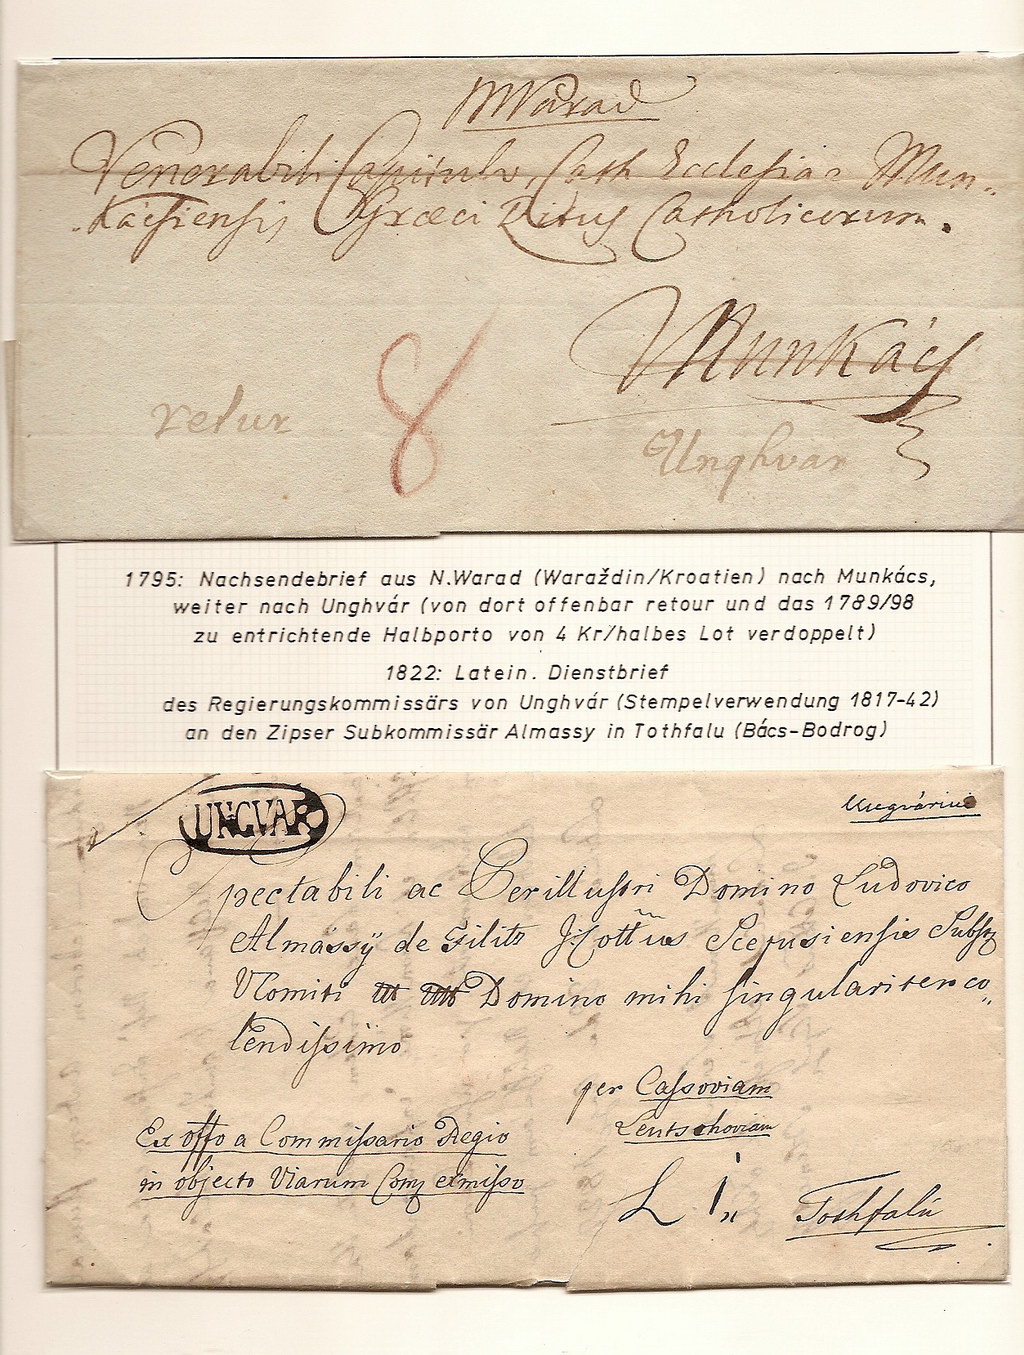 NWarad
Venerabili Capitulo, Cath Ecclesiae Mun„
kacsiensis Graeci Ritus Catholicorum.
Munkács
retur 8 Unghvar
1795: Nachsendebrief aus N.Warad (Waraždin/Kroatien) nach Munkács,
weiter nach Unghvár (von dort offenbar retour und das 1789/98
zu entrichtende Halbporto von 4 Kr/halbes Lot verdoppelt)
1822: Latein. Dienstbrief
des Regierungskommissärs von Unghvár (Stempelverwendung 1817-42)
an den Zipser Subkommissär Almassy in Tothfalu (Bács-Bodrog)
UNGVAR
Spectabili ac Perillustri Domino Ludovico
Almássÿ de Filitz Scepusiensis
Domino mihi singulariter co„
lendissimo
per Cassoviam
Leutschoviam
Ex offo a Commissario Regio
in objecto Viarum exmisso
Tothfalú